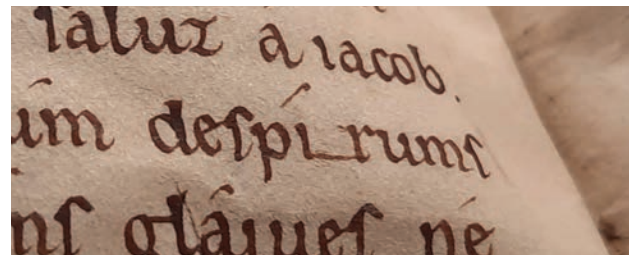 ſaluz a iacob.
um deſpi rumſ
nſ glaiueſ ne